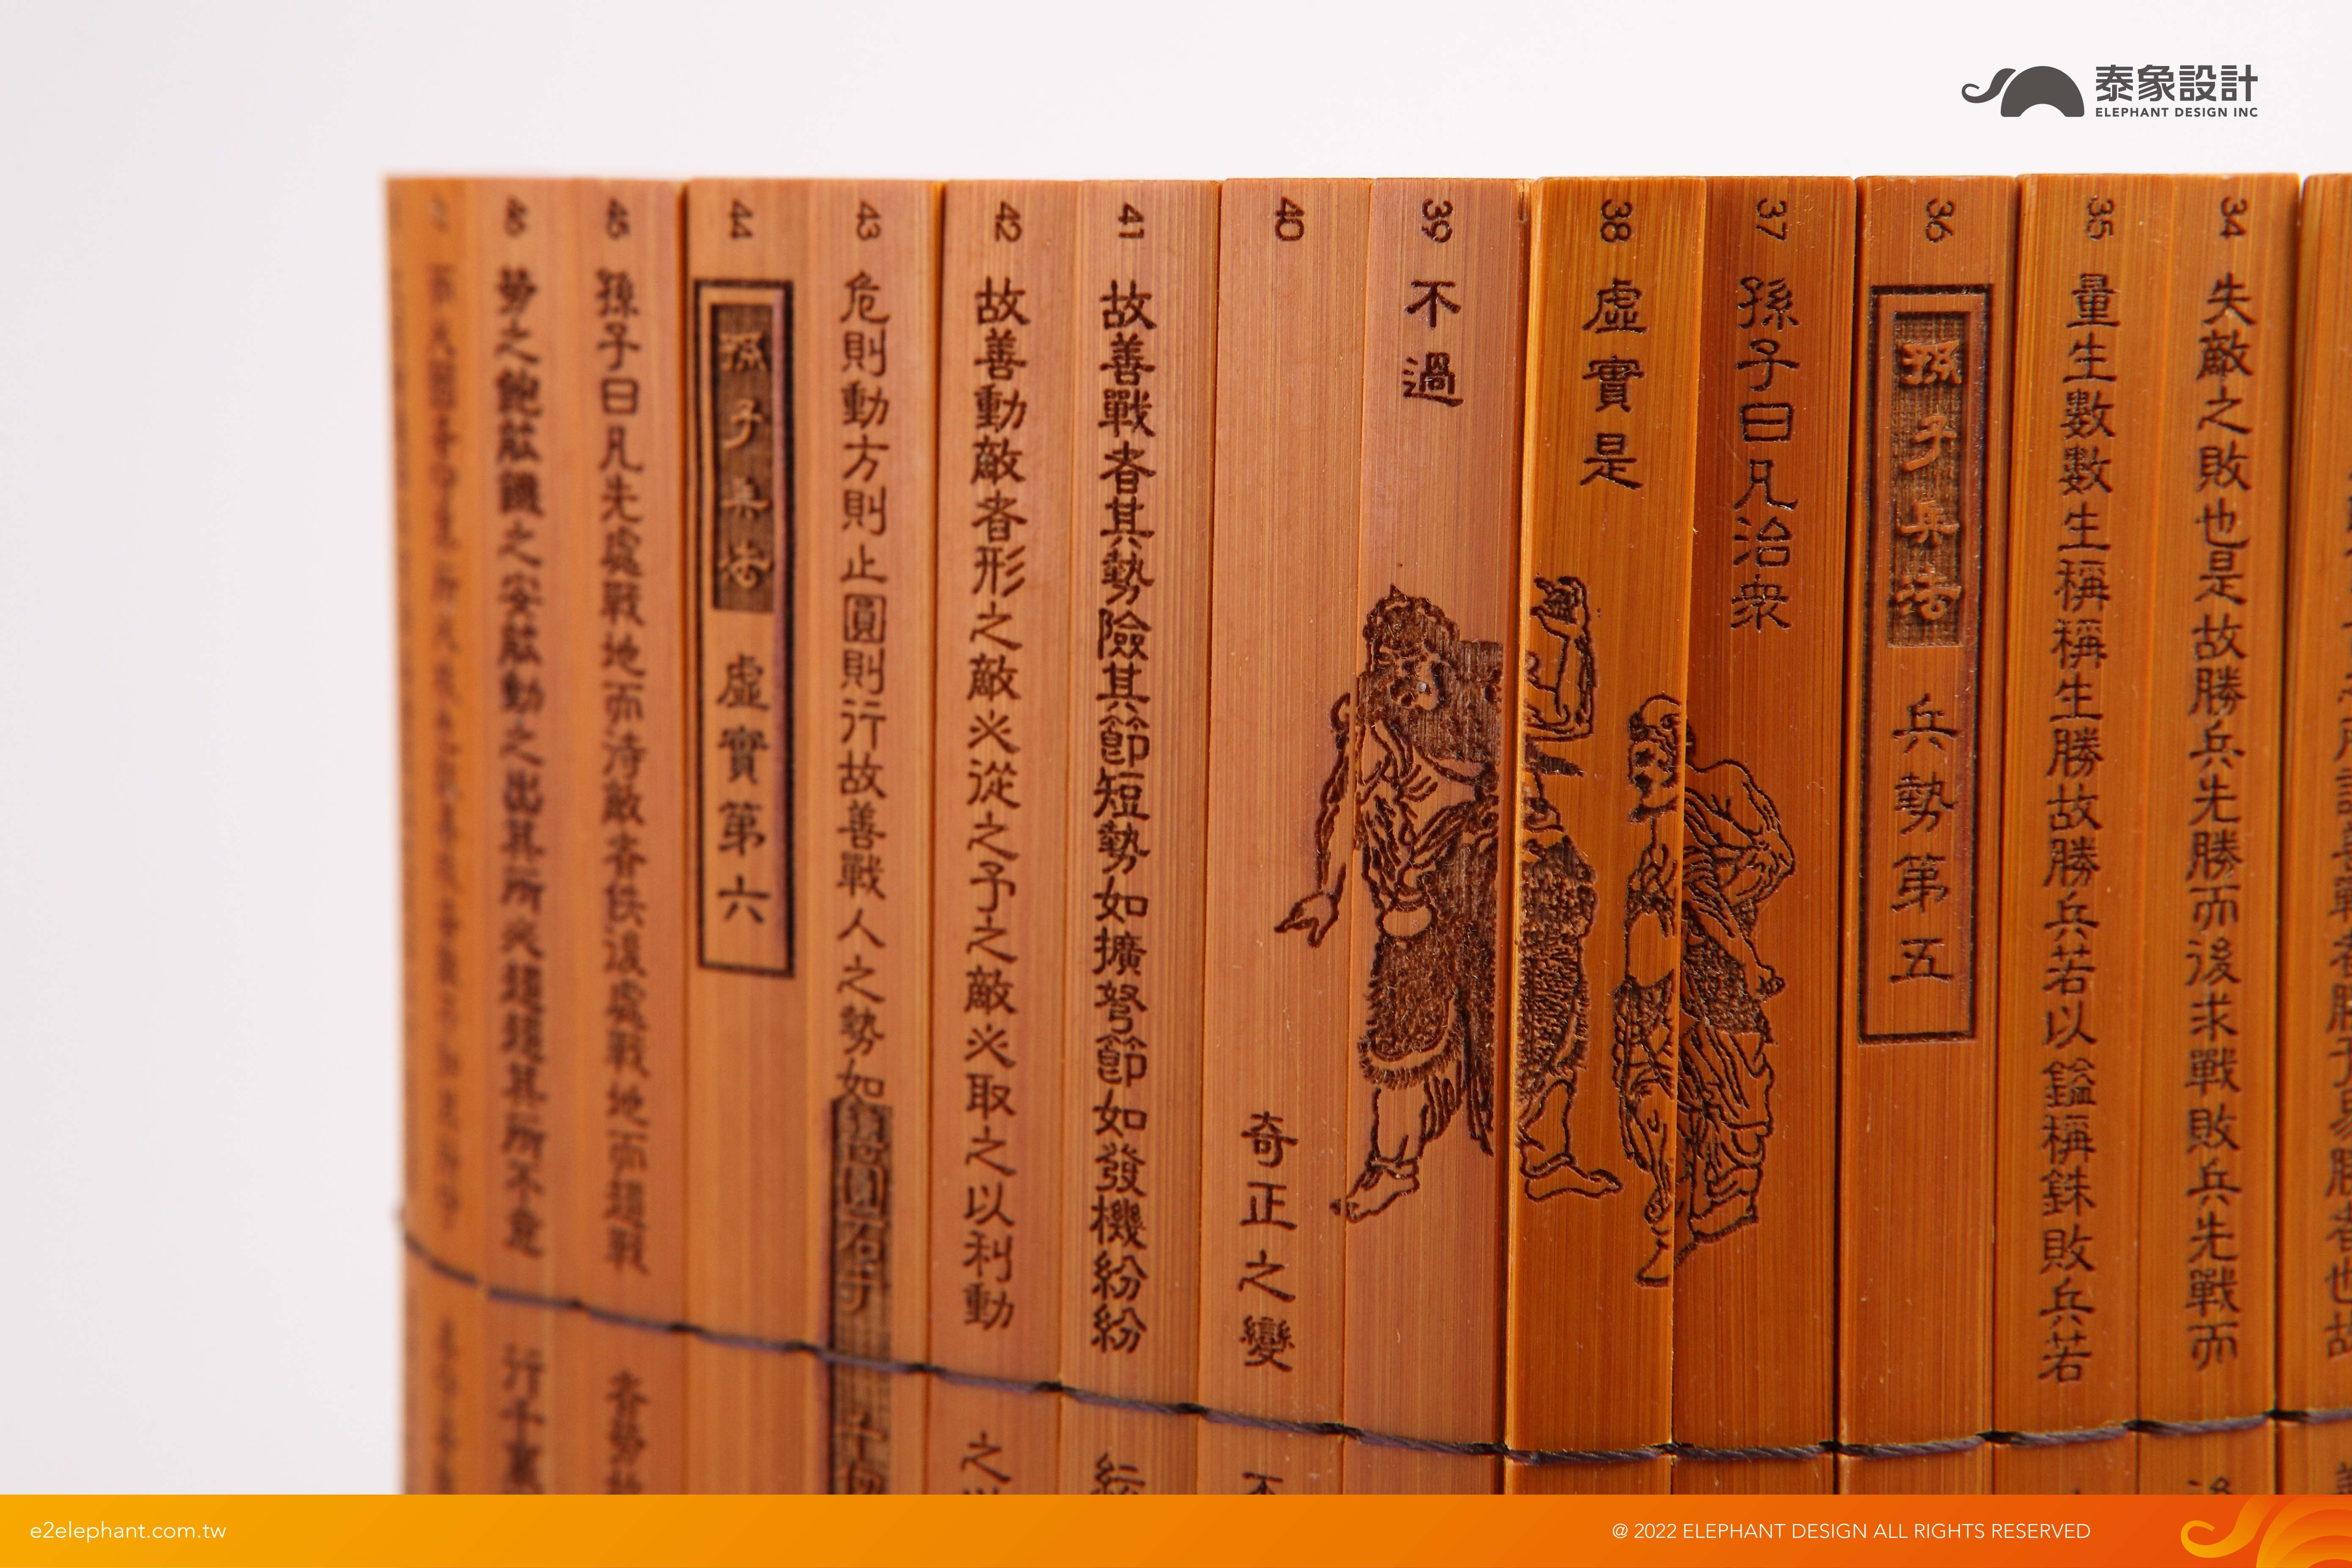 泰象設計
ELEPHANT DESIGN INC
34
失敵之敗也是故勝兵先勝而後求戰敗兵先戰而
35
量生數數生稱稱生勝故勝兵若以鎰稱銖敗兵若
36
孫子兵法 兵勢第五
37
孫子曰凡治衆
38
虛實是
39
不過
40
奇正之變
不
41
故善戰者其勢險其節短勢如擴弩節如發機紛紛
紜
42
故善動敵者形之敵必從之予之敵必取之以利動
之以
43
危則動方則止圓則行故善戰人之勢如轉圓石于
千仞
孫子兵法 虛實第六
孫子曰凡先處戰地而待敵者佚後處戰地而趨戰
者勞
勞之飽能饑之安能動之出其所必趨趨其所不意
行千里
e2elephant.com.tw
@ 2022 ELEPHANT DESIGN ALL RIGHTS RESERVED